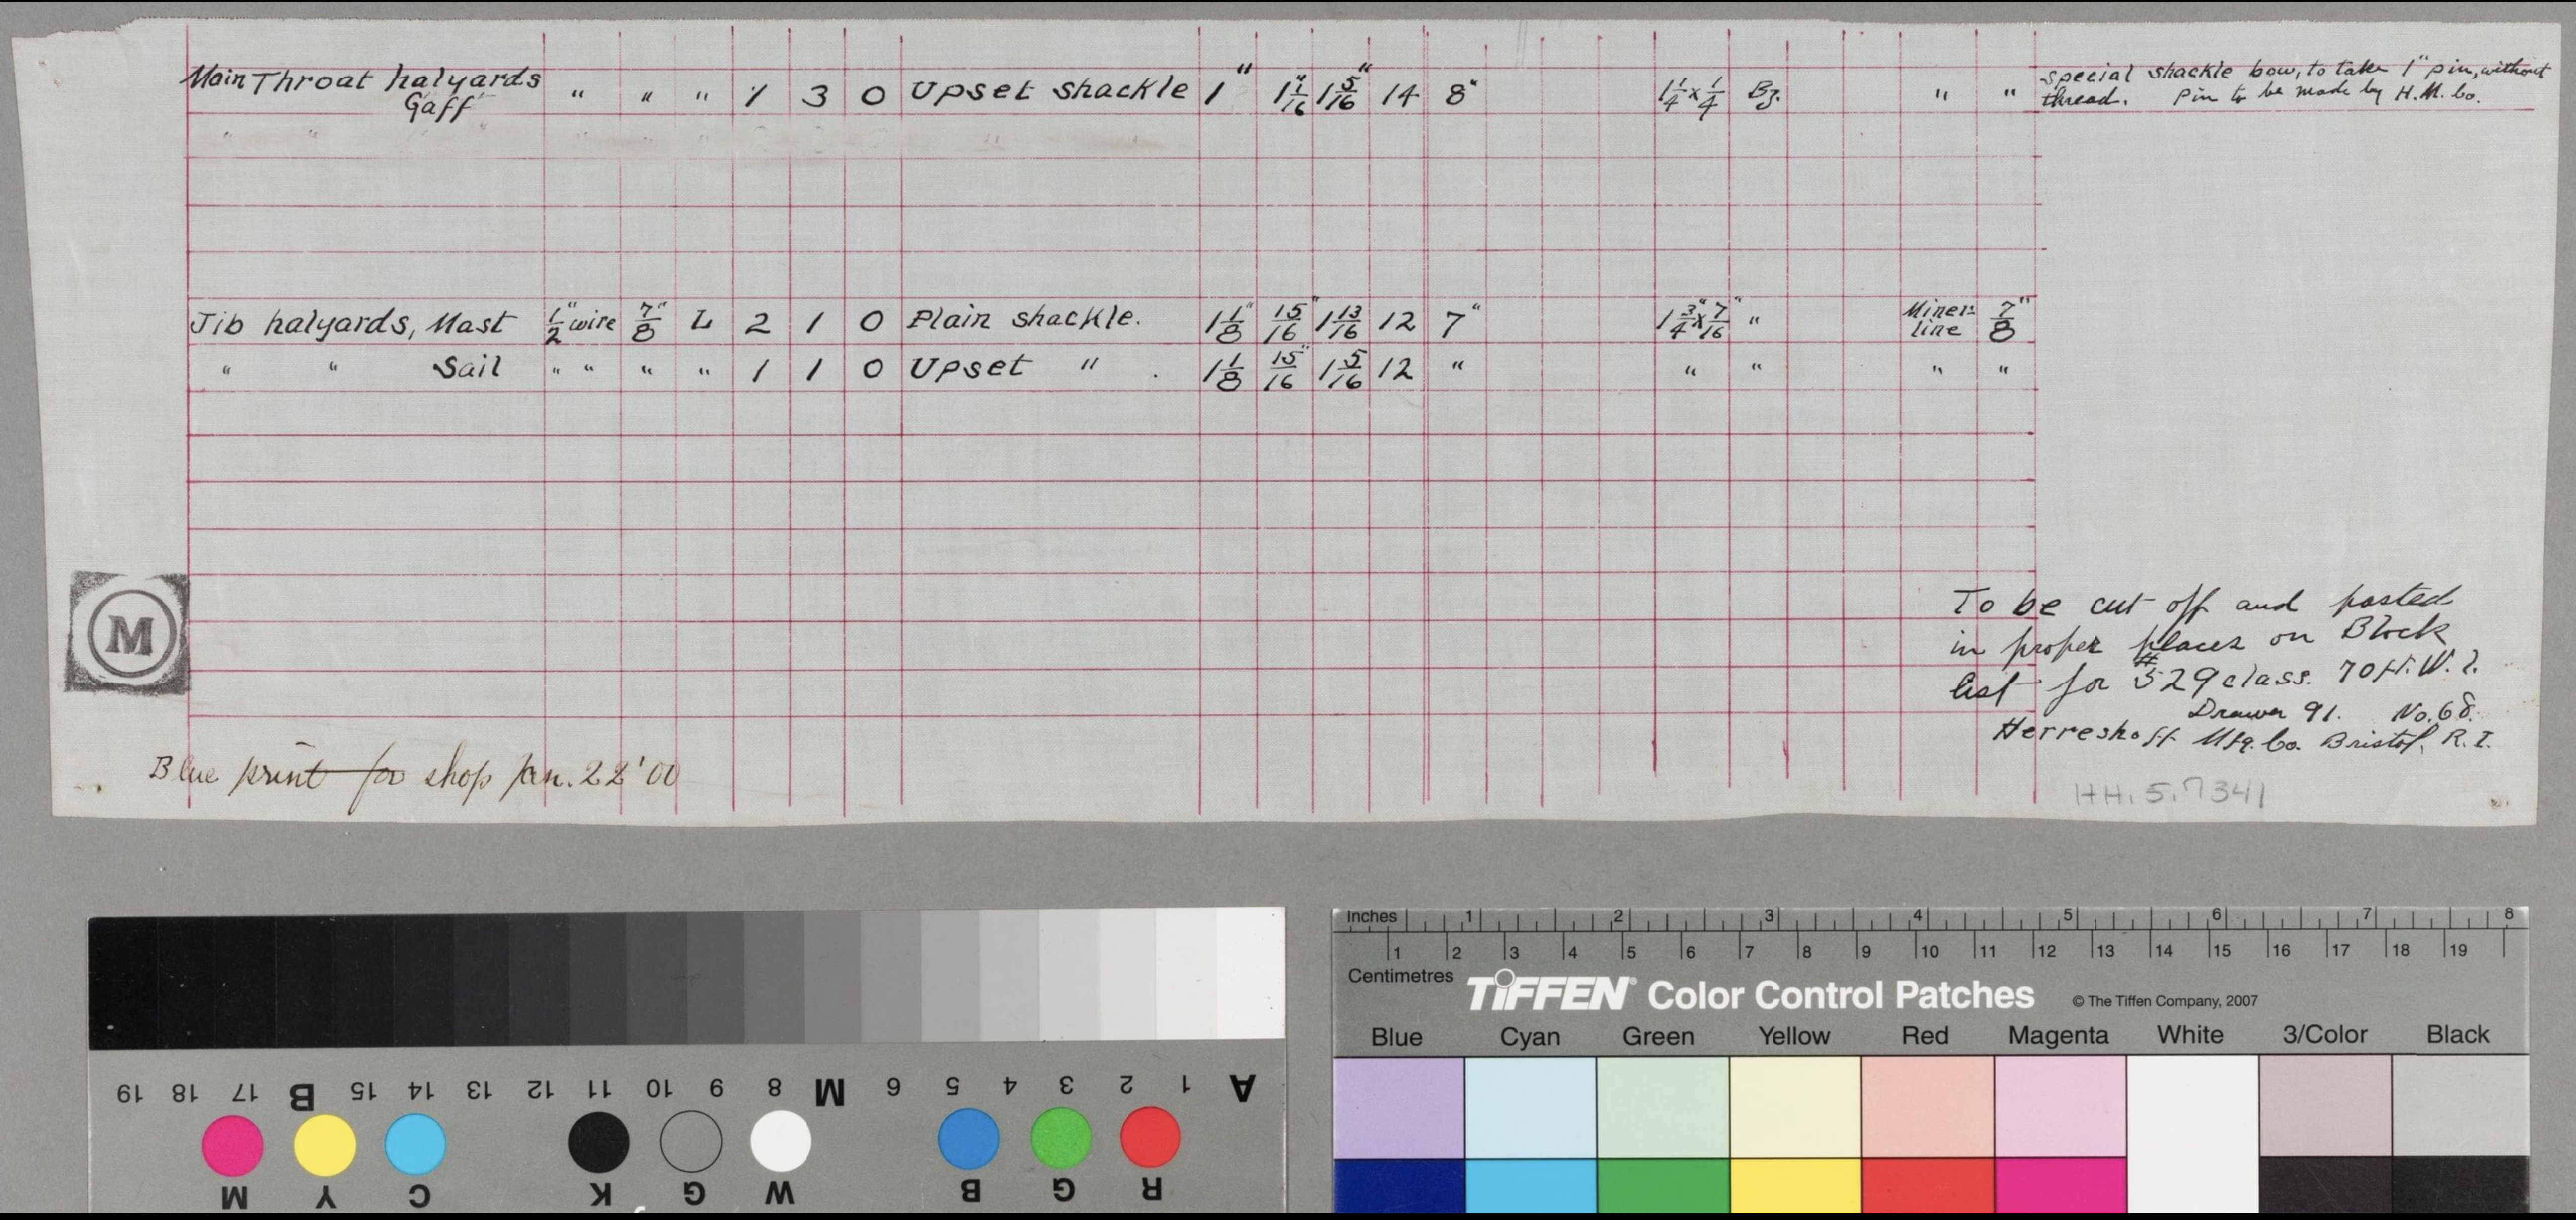 Main Throat halyards Gaff " " " 1 3 0 Upset shackle 1" 1 1/16" 1 5/16" 14 8" 1 1/4 x 1/4 Bz. " " special shackle bow, to take 1" pin, without thread. Pin to be made by H.M. Co.
Jib halyards, Mast 1/2" wire 7/8" L 2 1 0 Plain shackle. 1 1/8" 15/16" 1 13/16 12 7" 1 3/4" x 7/16" " Miner's line 7/8"
" " Sail " " " " 1 1 0 Upset " . 1 1/8 15/16" 1 5/16 12 " " " " "
M
To be cut off and pasted
in proper places on Block
list for #529 class. 70 ft. W. l.
Drawer 91. No. 68.
Herreshoff Mfg. Co. Bristol, R. I.
Blue print for shop Jan. 22 '00
HH.5.7341
Inches 1 2 3 4 5 6 7 8
1 2 3 4 5 6 7 8 9 10 11 12 13 14 15 16 17 18 19
Centimetres
TIFFEN® Color Control Patches © The Tiffen Company, 2007
Blue Cyan Green Yellow Red Magenta White 3/Color Black
A 1 2 3 4 5 6 M 8 9 10 11 12 13 14 15 B 17 18 19
R G B W G K C Y M